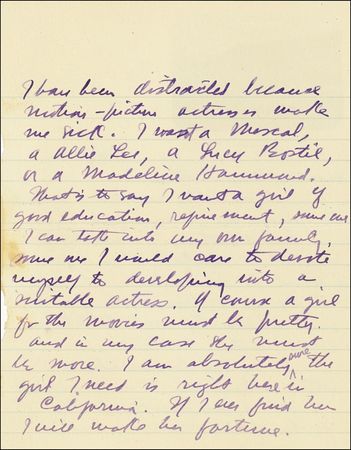 I have been distracted because
motion-picture actresses make
me sick. I want a Mescal,
a Allie Lee, a Lucy Bostil,
or a Madeline Hammond.
That's to say I want a girl of
good education, refinement, some one
I can take into my own family,
some one I would care to devote
myself to developing into a
suitable actress. Of course a girl
for the movies must be pretty.
and in my case she must
be more. I am absolutely sure the
girl I need is right here in
California. If I ever find her
I will make her fortune.